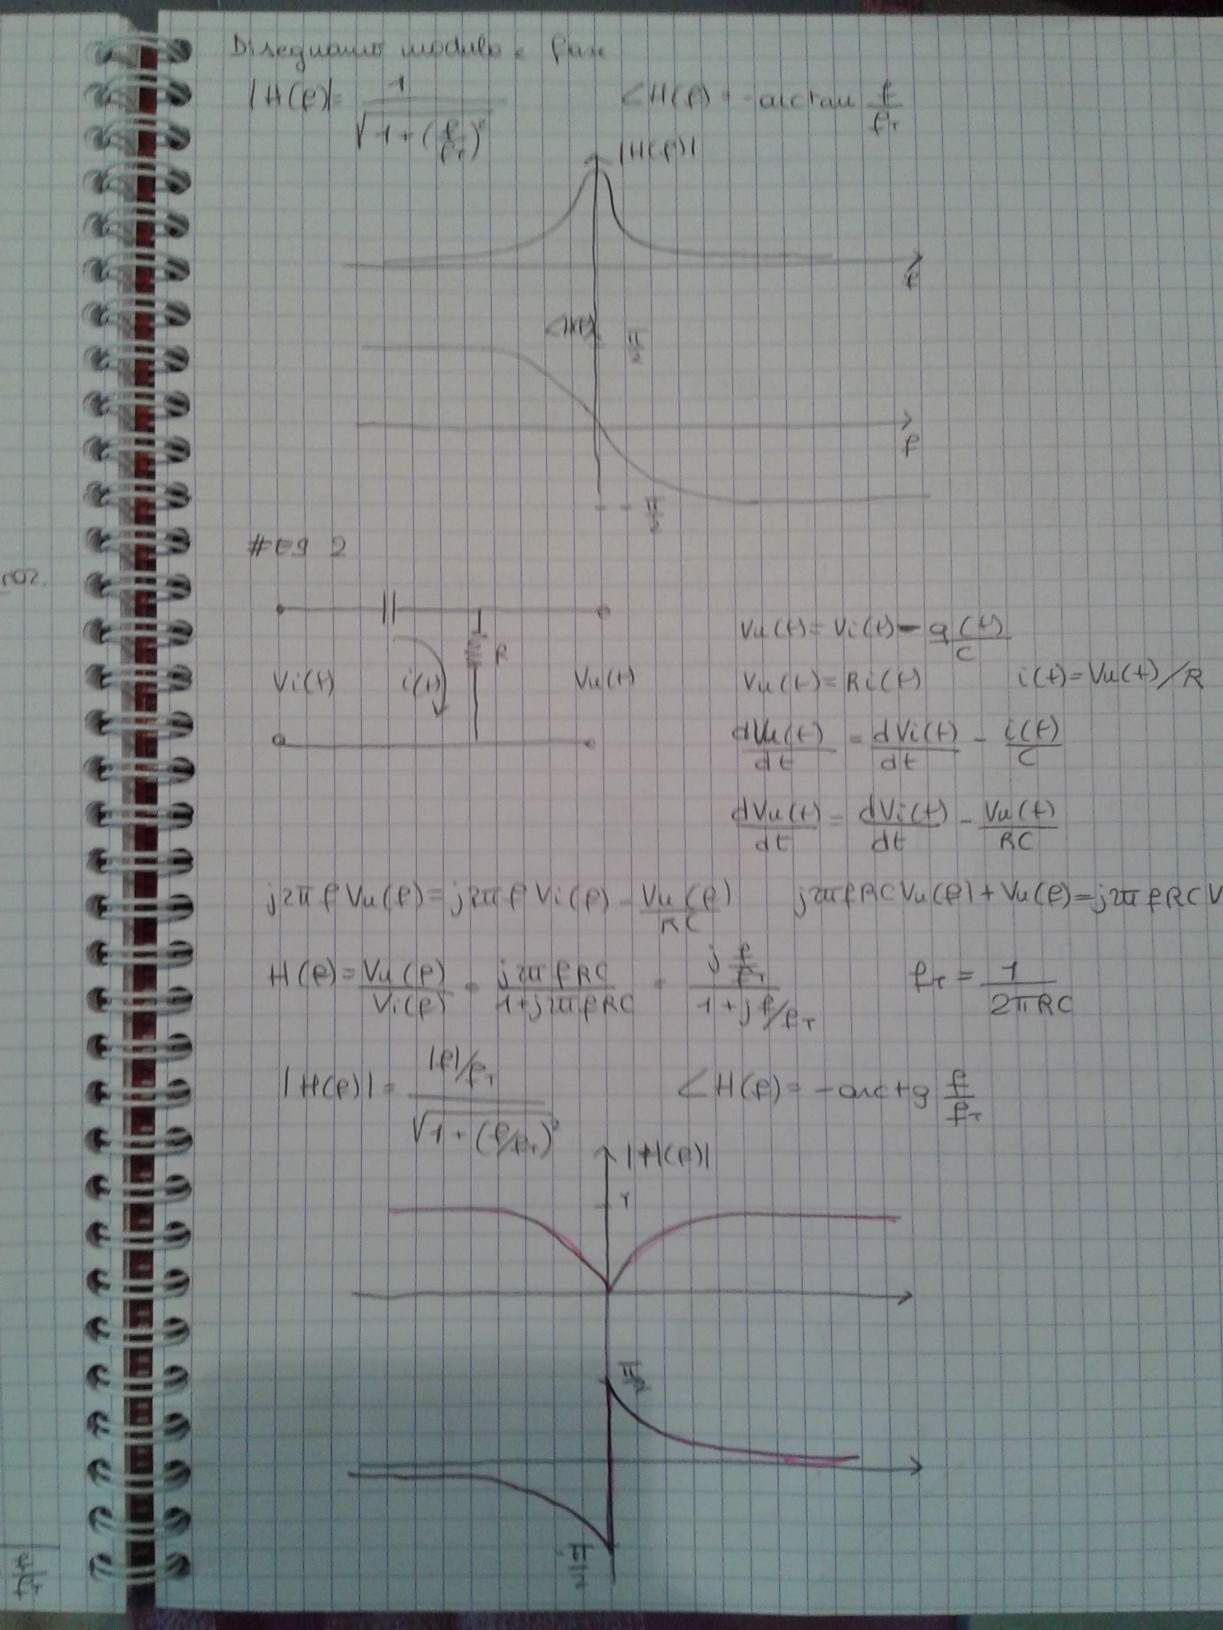 Disegnamo modulo e fase
|H(f)| = 1 / √(1 + (f/f_T)²) ∠H(f) = -arctan f/f_T
|H(f)|
f
∠H(f) π/2
f
- π/2
#Es 2
Vi(t) i(t) R Vu(t)
Vu(t) = Vi(t) - q(t)/C
Vu(t) = Ri(t) i(t) = Vu(t)/R
dVu(t)/dt = dVi(t)/dt - i(t)/C
dVu(t)/dt = dVi(t)/dt - Vu(t)/RC
j2πf Vu(f) = j2πf Vi(f) - Vu(f)/RC j2πfRC Vu(f) + Vu(f) = j2πfRC V
H(f) = Vu(f)/Vi(f) = j2πfRC / 1+j2πfRC = j f/f_T / 1+j f/f_T f_T = 1/2πRC
|H(f)| = |f|/f_T / √(1 + (f/f_T)²) ∠H(f) = -arctg f/f_T
|H(f)|
1
π/2
-π/2